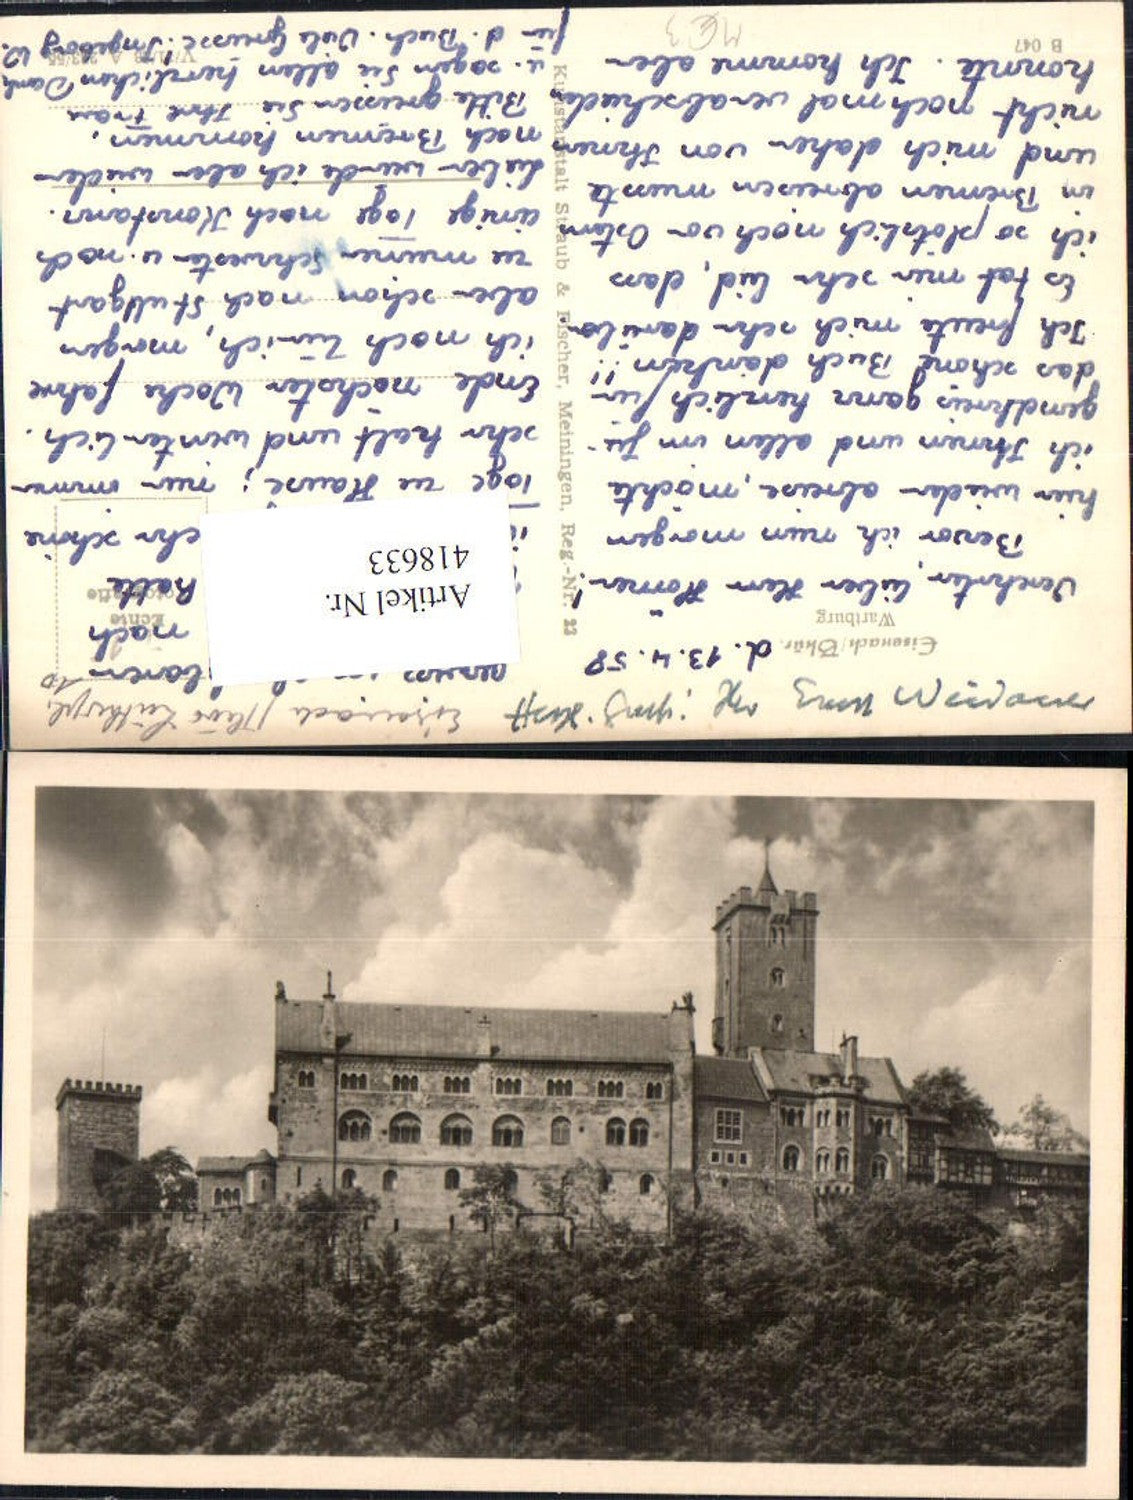 Eisenach/Thür.
Wartburg
d. 13.4.58
Verehrter, lieber Herr Horner!
Bevor ich nun morgen
hier wieder abreise, möchte
ich Ihnen und allen im Ju-
gendkreis ganz herzlich für
das schöne Buch danken!!
Ich freute mich sehr darüber
Es tat mir sehr leid, dass
ich so plötzlich noch vor Ostern
in Bremen abreisen musste
und mich daher von Ihnen
nicht noch mal verabschieden
konnte. Ich komme aber
B 047
Kunstanstalt Straub & Fischer, Meiningen, Reg.-Nr. 23
Eisenach
nach
hatte
sehr schöne
Tage zu Hause; nur immer
sehr kalt und winterlich.
Ende nächster Woche fahre
ich nach Zürich, morgen
aber schon nach Stuttgart
zu meiner Schwester u. noch
einige Tage nach Konstanz.
Lieber werde ich aber wieder
nach Bremen kommen.
Bitte grüssen Sie Ihre Frau
u. sagen Sie allen herzlichen Dank
für d. Buch. Viele Grüsse! Ingeborg W.
Echte
Fotografie
Artikel Nr.
418633